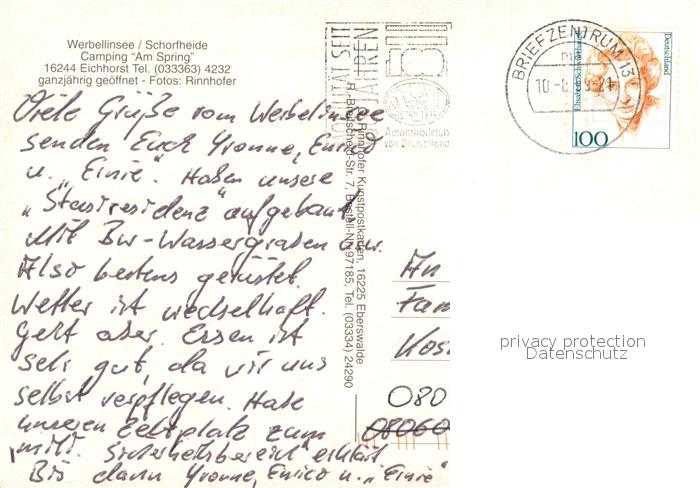 Werbellinsee / Schorfheide
Camping "Am Spring"
16244 Eichhorst Tel. (033363) 4232
ganzjährig geöffnet - Fotos: Rinnhofer
Viele Grüße vom Werbellinsee
senden Euch Yvonne, Enrico
u. "Einie". Haben unsere
"Stasiresidenz" aufgebaut.
Mit Bw-Wassergraben usw.
Also bestens gerüstet.
Wetter ist wechselhaft.
Geht aber. Essen ist
sehr gut, da wir uns
selbst verpflegen. Habe
unseren Zeltplatz zum
"mil. Sicherheitsbereich" erklärt
Bis dann Yvonne, Enrico u. "Einie"
Rinnhofer Kunstpostkarten, 16225 Eberswalde
R.-Breitscheid-Str. 7, Bestell-Nr. 97185, Tel. (03334) 24290
SEIT
JAHREN
Automobilclub
von Deutschland
BRIEFZENTRUM 13
Deutschland
100
An
Fam
080
08060
privacy protection
Datenschutz